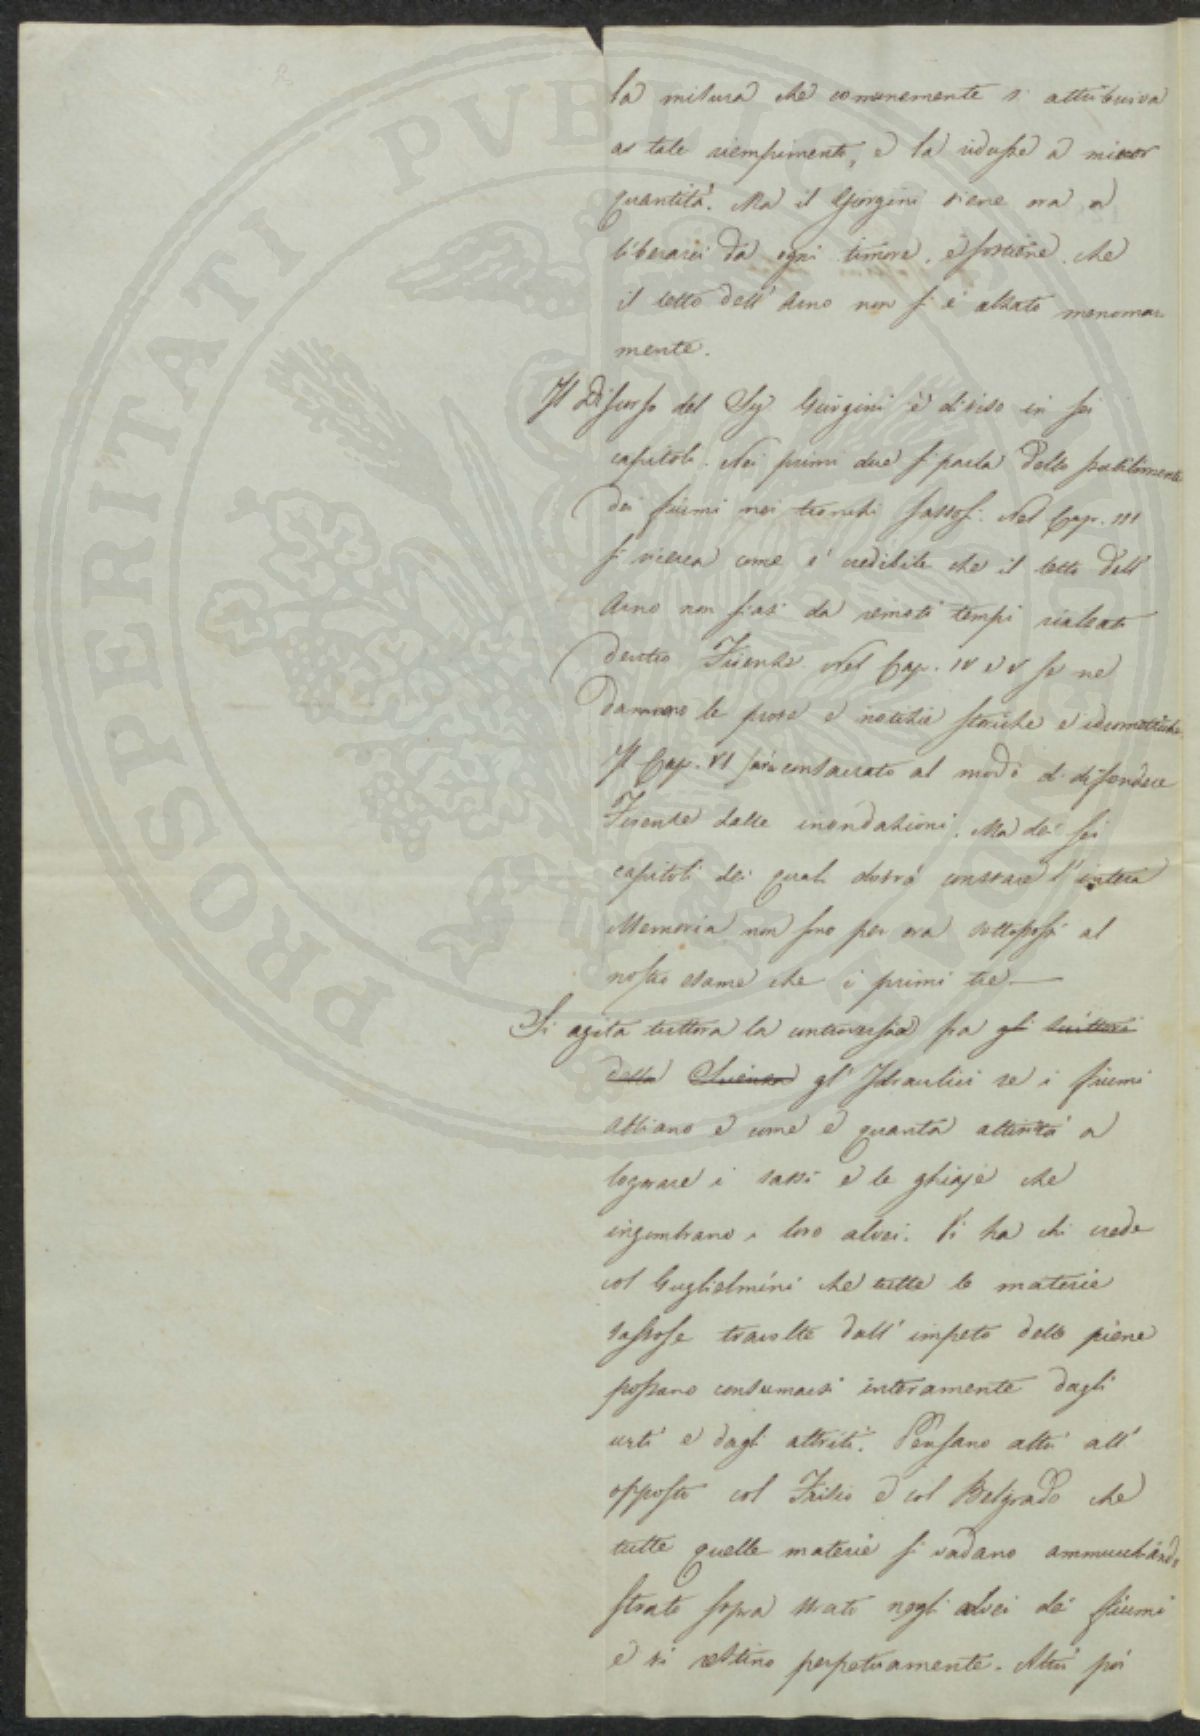 la misura che comunemente si attribuiva
as tale riempimento, e la ridusse a minor
quantità. Ma il Giorgini viene ora a
liberarci da ogni timore, e sostiene, che
il letto dell' Arno non si è alzato menoma-
mente.
Il Discorso del Sig Giorgini è diviso in sei
capitoli. Nei primi due si parla dello stabilimento
dei fiumi nei tronchi sassosi. Nel Cap. III
si ricerca come è credibile che il letto dell'
Arno non siasi da remoti tempi rialzato
dentro Firenze. Nel Cap. IV e V se ne
daranno le prove e notizie storiche e idrometriche.
Il Cap. VI sarà consacrato al modo di difendere
Firenze dalle inondazioni. Ma dei sei
capitoli dei quali dovrà constare l'intera
Memoria non sono per ora sottoposti al
nostro esame che i primi tre.—
Si agita tuttora la controversia fra gli scrittori
della Scienza gl' Idraulici se i fiumi
abbiano e come e quanta attività a
logorare i sassi e le ghiaje che
ingombrano i loro alvei. Vi ha chi crede
col Guglielmini che tutte le materie
sassose travolte dall' impeto delle piene
possano consumarsi interamente dagli
urti e dagli attriti. Pensano altri all'
opposto col Frisio e col Belgrado che
tutte quelle materie si vadano ammucchiando
strato sopra strato negli alvei dei fiumi
e vi restino perpetuamente. Altri poi
PROSPERITATI PVBLICAE